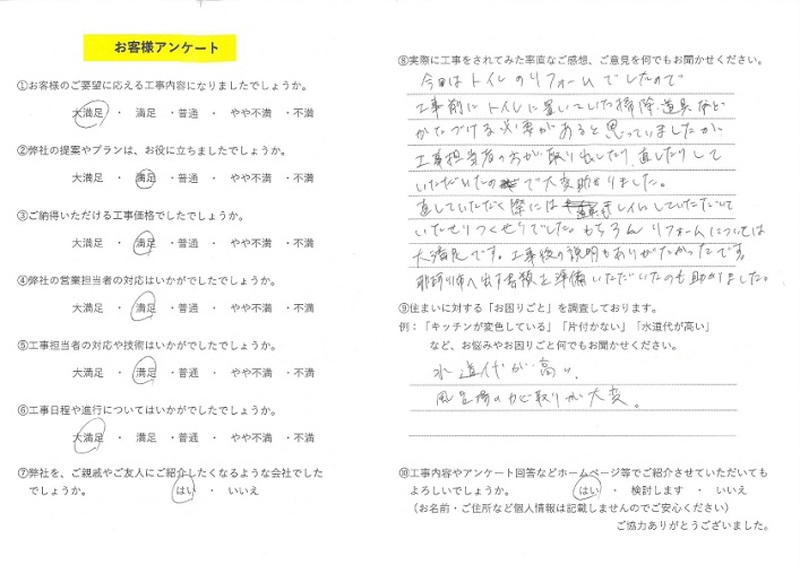 お客様アンケート
①お客様のご要望に応える工事内容になりましたでしょうか。
大満足 ・ 満足 ・普通 ・ やや不満 ・不満
②弊社の提案やプランは、お役に立ちましたでしょうか。
大満足 ・ 満足 ・普通 ・ やや不満 ・不満
③ご納得いただける工事価格でしたでしょうか。
大満足 ・ 満足 ・普通 ・ やや不満 ・不満
④弊社の営業担当者の対応はいかがでしたでしょうか。
大満足 ・ 満足 ・普通 ・ やや不満 ・不満
⑤工事担当者の対応や技術はいかがでしたでしょうか。
大満足 ・ 満足 ・普通 ・ やや不満 ・不満
⑥工事日程や進行についてはいかがでしたでしょうか。
大満足 ・ 満足 ・普通 ・ やや不満 ・不満
⑦弊社を、ご親戚やご友人にご紹介したくなるような会社でした
でしょうか。 はい ・ いいえ
⑧実際に工事をされてみた率直なご感想、ご意見を何でもお聞かせください。
今回はトイレのリフォームでしたので
工事前にトイレに置いていた掃除道具など
かたづける必要があると思っていましたが、
工事担当者の方が取り出したり、直したりして
いただいたので大変助かりました。
直していただく際には道具までキレイにしていただいて
いたせりつくせりでした。もちろんリフォームについては
大満足です。工事後の説明もありがたかったです。
市へ出す書類を準備いただいたのも助かりました。
⑨住まいに対する「お困りごと」を調査しております。
例：「キッチンが変色している」「片付かない」「水道代が高い」
など、お悩みやお困りごと何でもお聞かせください。
水道代が高い、
風呂場のカビ取りが大変。
⑩工事内容やアンケート回答などホームページ等でご紹介させていただいても
よろしいでしょうか。 はい ・ 検討します ・ いいえ
（お名前・ご住所など個人情報は記載しませんのでご安心ください）
ご協力ありがとうございました。